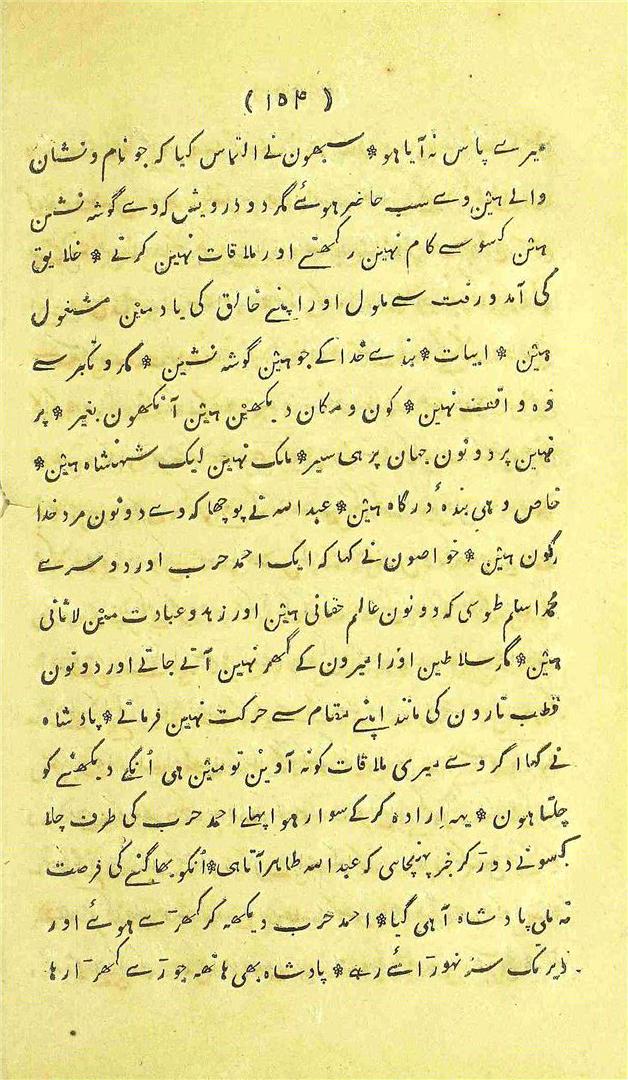 (۱۵۴)
میرے پاس نہ آیا ہو * سبھون نے التماس کیا کہ جو نام و نشان
والے ہین وے سب حاضر ہوئے مگر دو درویش کہ وے گوشہ نشین
ہین کسو سے کام نہین رکھتے اور ملاقات نہین کرتے * خلایق
کی آمد و رفت سے ملول اور اپنے خالق کی یاد مین مشغول
ہین * ابیات * بندے خدا کے جو ہین گوشہ نشین * مکر و تکبر سے
وہ واقف نہین * کون و مکان دیکھین ہین آنکھون بغیر * پر
نہین پر دونون جہان پر ہی سیر * ملک نہین لیک شہنشاہ ہین *
خاص وہی بندۂ درگاہ ہین * عبداللہ نے پوچھا کہ وے دونون مرد خدا
کون ہین * خواصون نے کہا کہ ایک احمد حرب اور دوسرے
محمد اسلم طوسی کہ دونون عالم حقانی ہین اور زہد و عبادت مین لاثانی
ہین * مگر سلاطین اور امیرون کے گھر نہین آتے جاتے اور دونون
قطب تارون کی مانند اپنے مقام سے حرکت نہین فرماتے * پادشاہ
نے کہا اگر وے میری ملاقات کو نہ آوین تو مین ہی اُنکے دیکھنے کو
چلتا ہون * یہہ اِرادہ کر کے سوار ہوا پہلے احمد حرب کی طرف چلا
کسو نے دوڑ کر خبر پہنچائی کہ عبداللہ طاہر آتا ہی * اُنکو بھاگنے کی فرصت
نہ ملی پادشاہ آ ہی گیا * احمد حرب دیکھہ کر کھڑے ہوئے اور
دیر تک سر نہوڑائے رہے * پادشاہ بھی ہاتھہ جوڑے کھڑا رہا